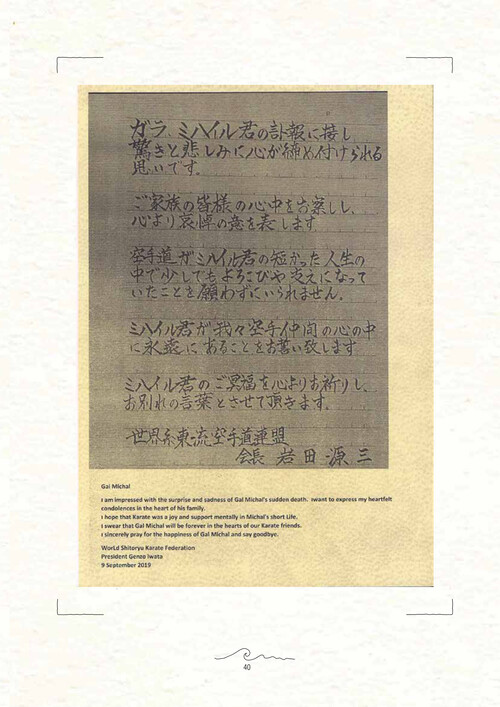 ガラ、ミハイル君の訃報に接し
驚きと悲しみに心が締め付けられる
思いです。
ご家族の皆様の心中をお察しし、
心より哀悼の意を表します
空手道がミハイル君の短かった人生の
中で少しでもよろこびや支えになって
いたことを願わずにいられません。
ミハイル君が我々空手仲間の心の中
に永遠にあることをお誓い致します
ミハイル君のご冥福を心よりお祈りし、
お別れの言葉とさせて頂きます。
世界糸東流空手道連盟
会長 岩田源三
Gal Michal
I am impressed with the surprise and sadness of Gal Michal's sudden death. Iwant to express my heartfelt
condolences in the heart of his family.
I hope that Karate was a joy and support mentally in Michal's short Life.
I swear that Gal Michal will be forever in the hearts of our Karate friends.
I sincerely pray for the happiness of Gal Michal and say goodbye.
World Shitoryu Karate Federation
President Genzo Iwata
9 September 2019
40